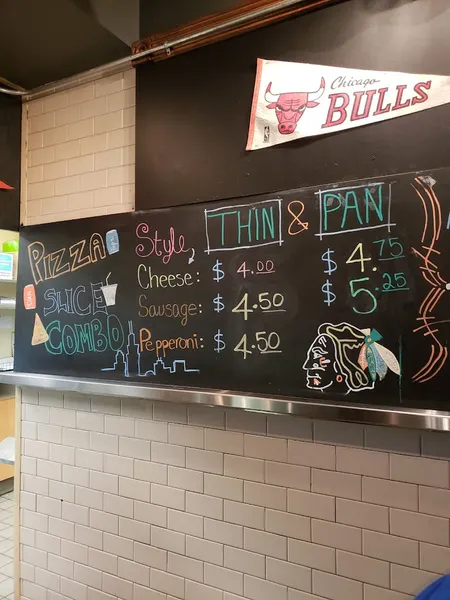 Chicago
BULLS
PIZZA
SLICE
COMBO
Style THIN & PAN
Cheese: $ 4.00 $ 4.75
Sausage: $ 4.50 $ 5.25
Pepperoni: $ 4.50